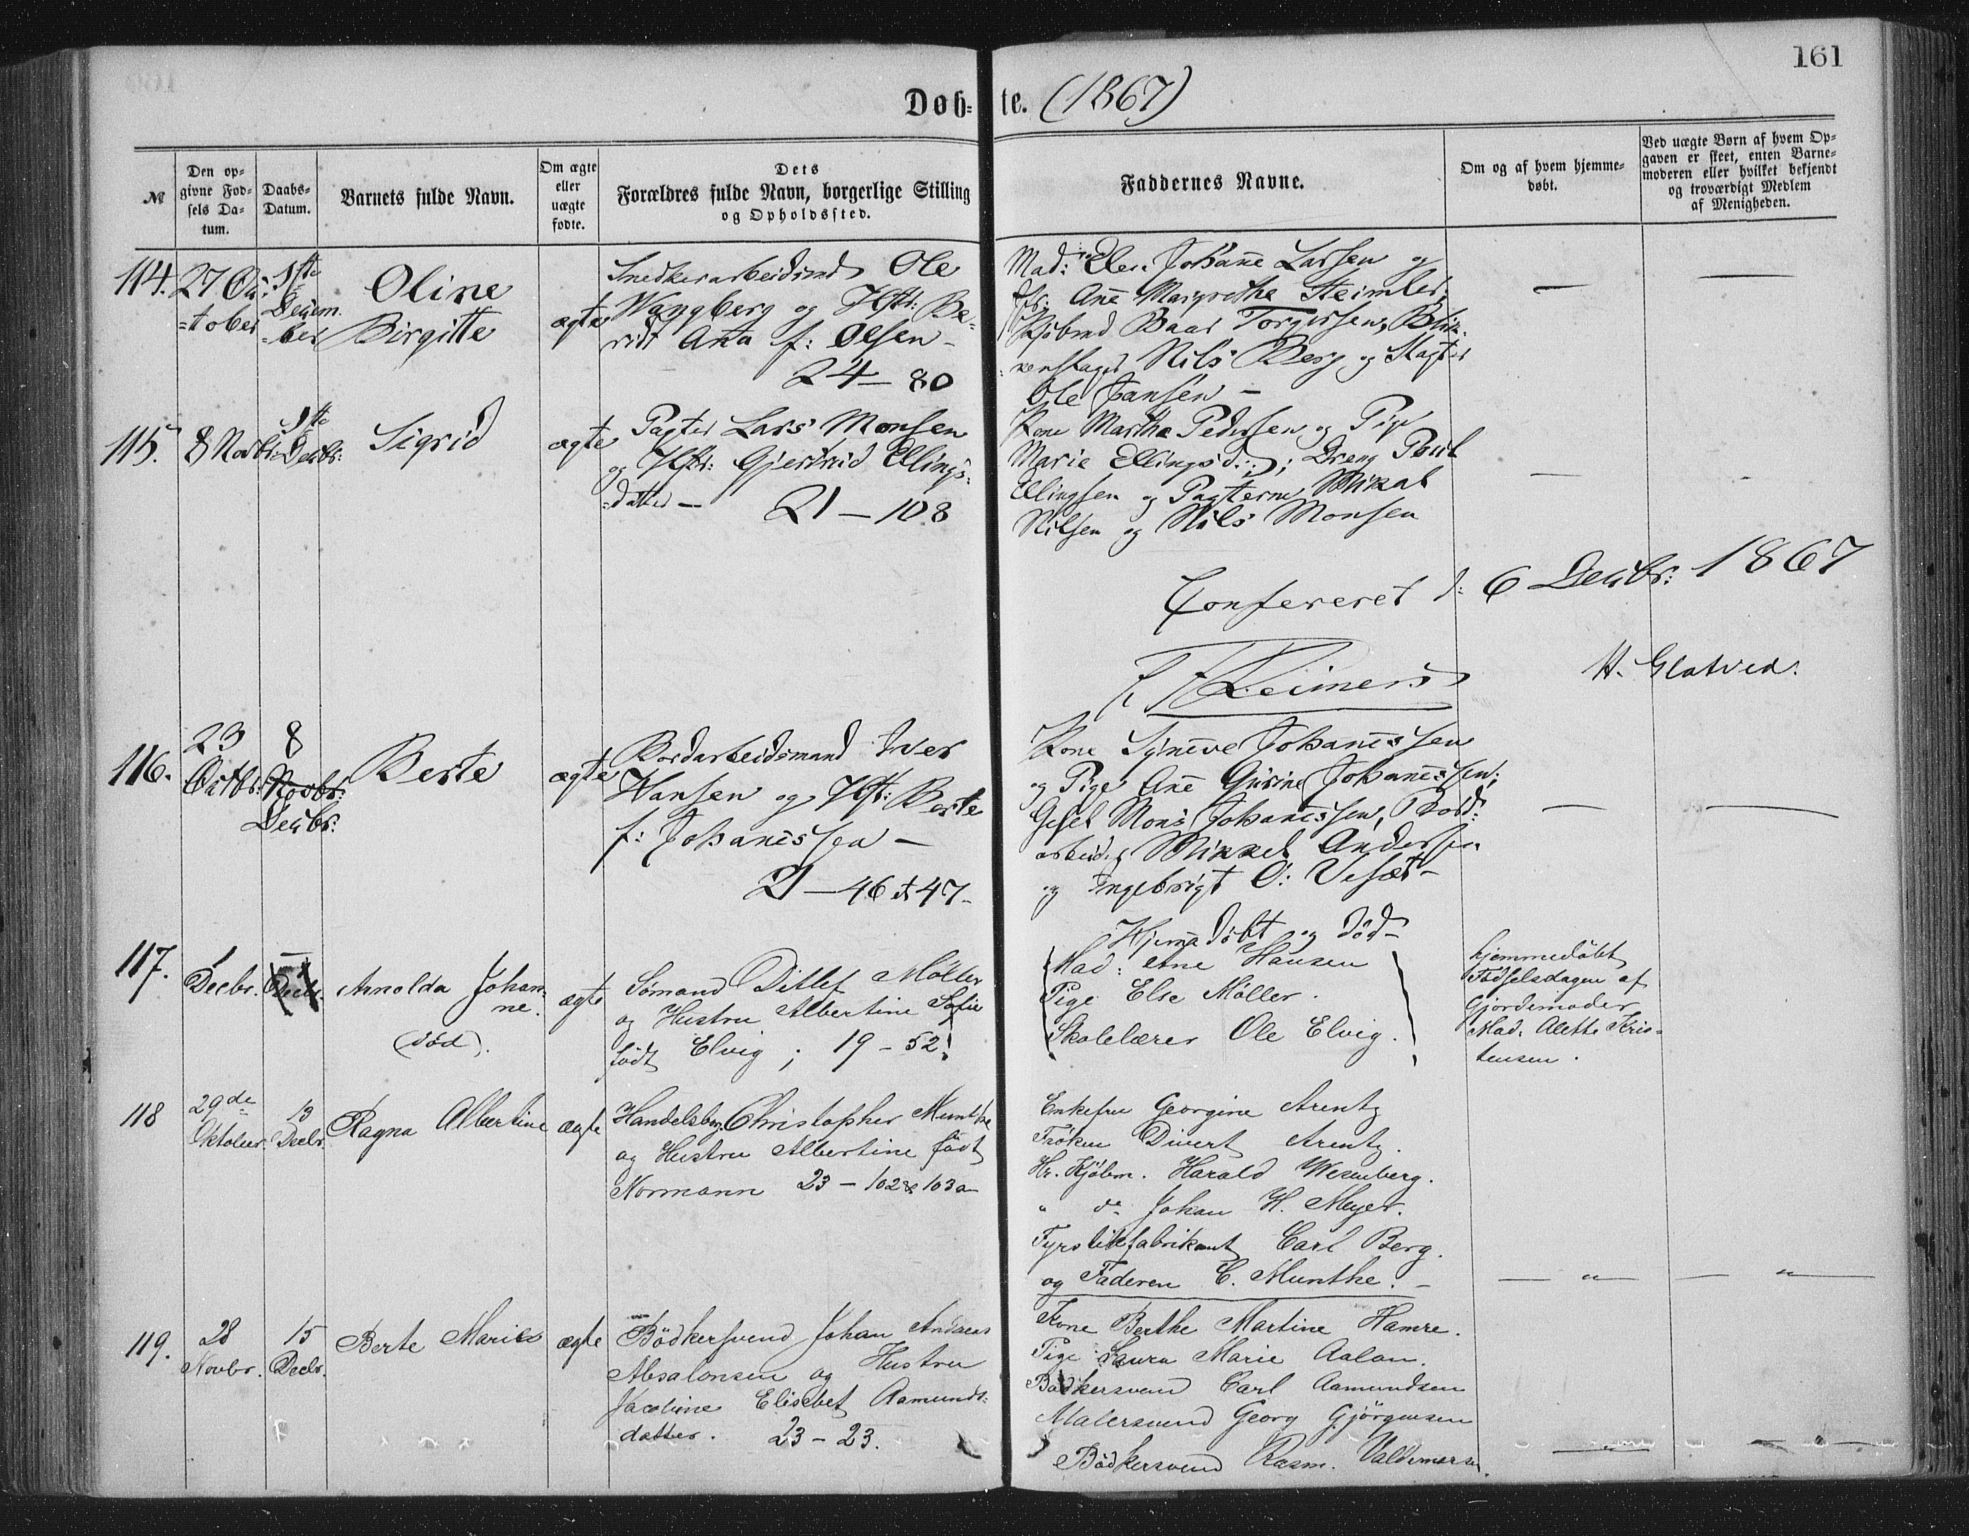 161
Døb-te. (1867)
№
Den op-
givne Fød-
sels Da-
tum.
Daabs-
Datum.
Barnets fulde Navn.
Om ægte
eller
uægte
fødte.
Dets
Forældres fulde Navn, borgerlige Stilling
og Opholdssted.
Faddernes Navne.
Om og af hvem hjemme-
døbt.
Ved uægte Børn af hvem Op-
gaven er skeet, enten Barne-
moderen eller hvilket bekjendt
og troværdigt Medlem
af Menigheden.
114.
27 Oc-
=tober
1ste
Decem
=ber
Oline
Birgitte
ægte
Snedkerarbeidsmd Ole
Wangberg og Hstr: Be-
rit Anta f: Olsen -
24 - 80
Mad: Johanne Larsen og
Ane Margrethe Steimler;
Kjøbmd Baar Torgersen,
Nils Berg og Slagter
Ole Jansen -
—
—
115.
8 Novbr:
1ste
Decbr:
Sigrid
ægte
Pagter Lars Monsen
og Hstr: Gjertrud Ellings-
=datter -
21 - 108
Kone Martha Pedersen og Pige
Marie Ellingsd:; Dreng Poul
Ellingsen og Pagterne Mikal
Nilsen og Nils Monsen
—
Confereret d: 6 Decbr: 1867
Reimers
H. Glatved.
116.
23
Octbr:
8
Novbr:
Decbr:
Berte
ægte
Bordarbeidsmand Iver
Hansen og Hst: Berte
f: Johanessen -
21 - 46 & 47 -
Kone Syneve Johanessen
og Pige Ane Gurine Johanessen;
Gesel Mons Johanessen, Bord:
arbeid. Mikkel Andersen
og Ingebrigt O: Vesæt -
—
—
117.
1
Decbr.
—
Decbr.
Arnolda Johan-
ne.
(død).
ægte
Sømand Ditlef Møller
og Hustru Albertine Sofie
født Elvig; 19 - 52.
Hjemmedøbt og død -
Mad: Ane Hansen
Pige Else Møller.
Skolelærer Ole Elvig.
hjemmedøbt
Fødselsdagen af
Gjordemoder
Mad. Alette Kris-
tensen.
118
29de
Oktober
13
Decbr.
Ragna Albertine
ægte
Handelsbg. Christopher Munthe
og Hustru Albertine født
Normann 23 - 102 & 103a -
Enkefru Georgine Arentz
Frøken Divert Arentz.
Hr. Kjøbm. Harald Wesenberg.
" do Johan H. Meyer.
Fyrstikfabrikant Carl Berg.
og Faderen C. Munthe. -
— " —
— " —
119.
28
Novbr.
15
Decbr.
Berte Marie
ægte
Bødkersvend Johan Andreas
Absalonsen og Hustru
Jacobine Elisebet Aamunds-
datter. 23 - 23.
Kone Berthe Martine Hamre.
Pige Laura Marie Aalan.
Bødkersvend Carl Aamundsen
Malersvend Georg Gjørgensen
Bødkersvend Rasm. Valdemarsen.
— " —
— " —